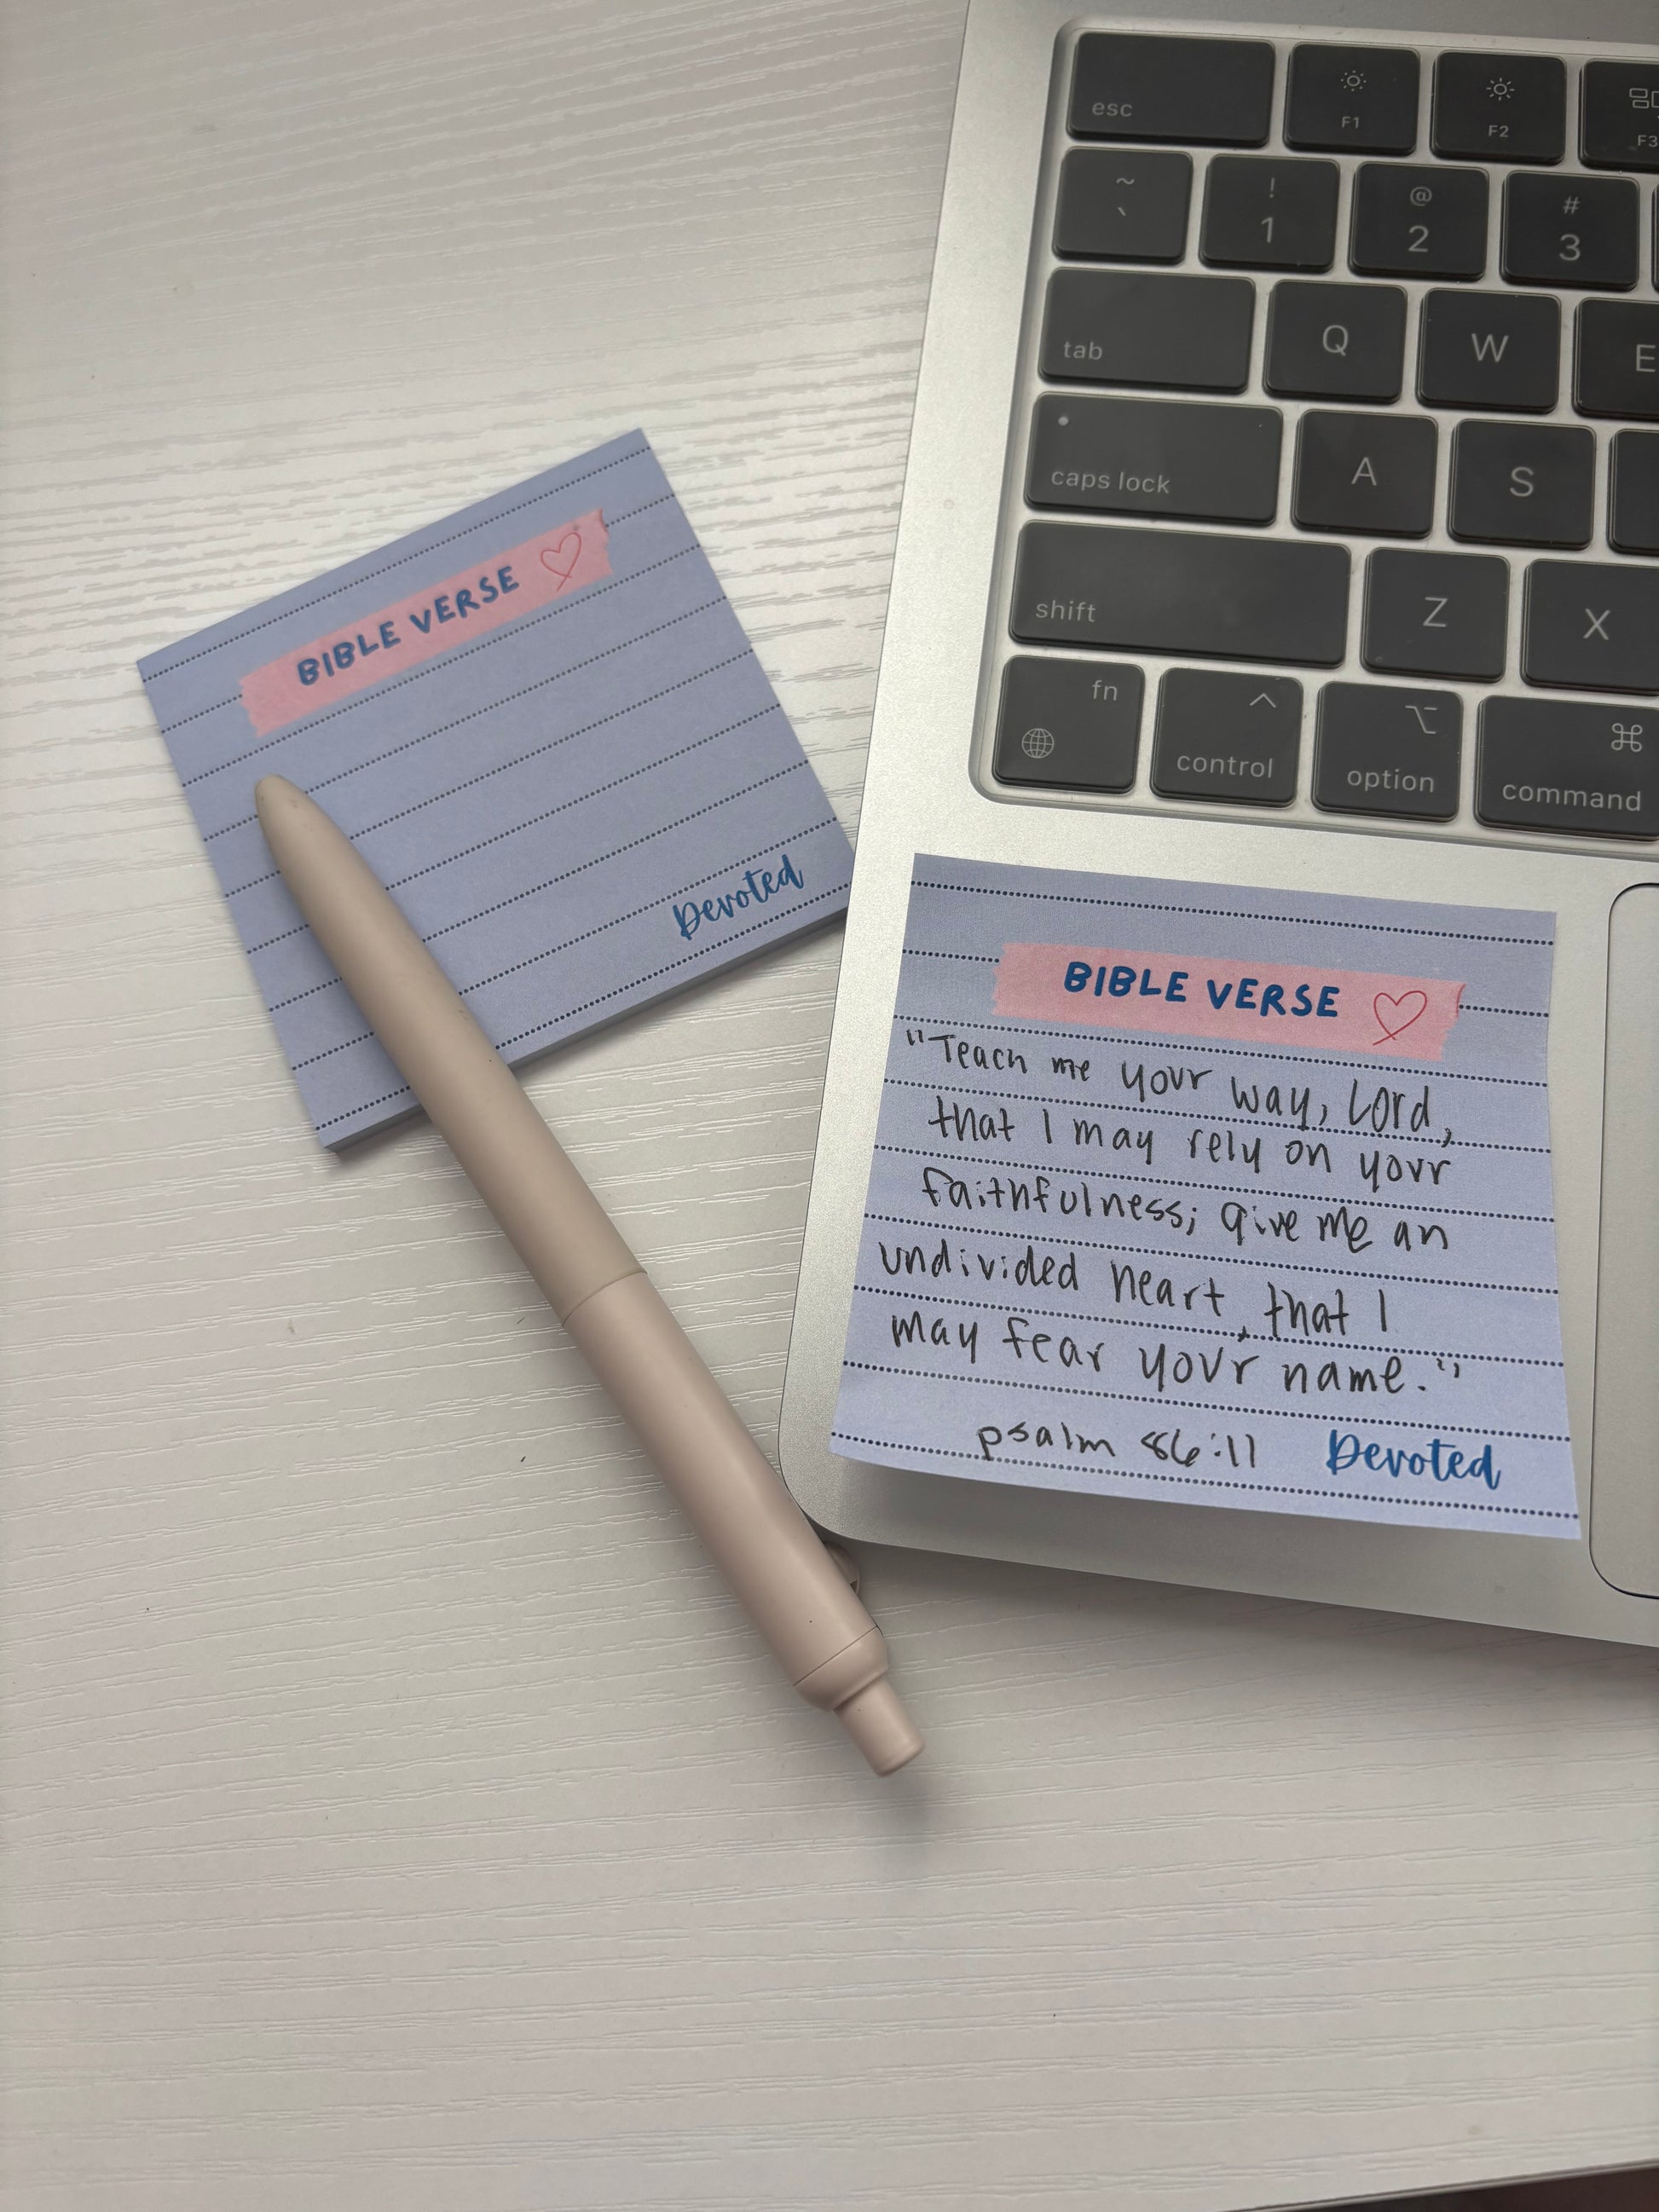 esc
F1
F2
F3
~
`
!
1
@
2
#
3
tab
Q
W
E
caps lock
A
S
shift
Z
X
fn
control
option
⌘
command
BIBLE VERSE
Devoted
BIBLE VERSE
"Teach me your way, Lord,
that I may rely on your
faithfulness; give me an
undivided heart, that I
may fear your name."
psalm 86:11
Devoted